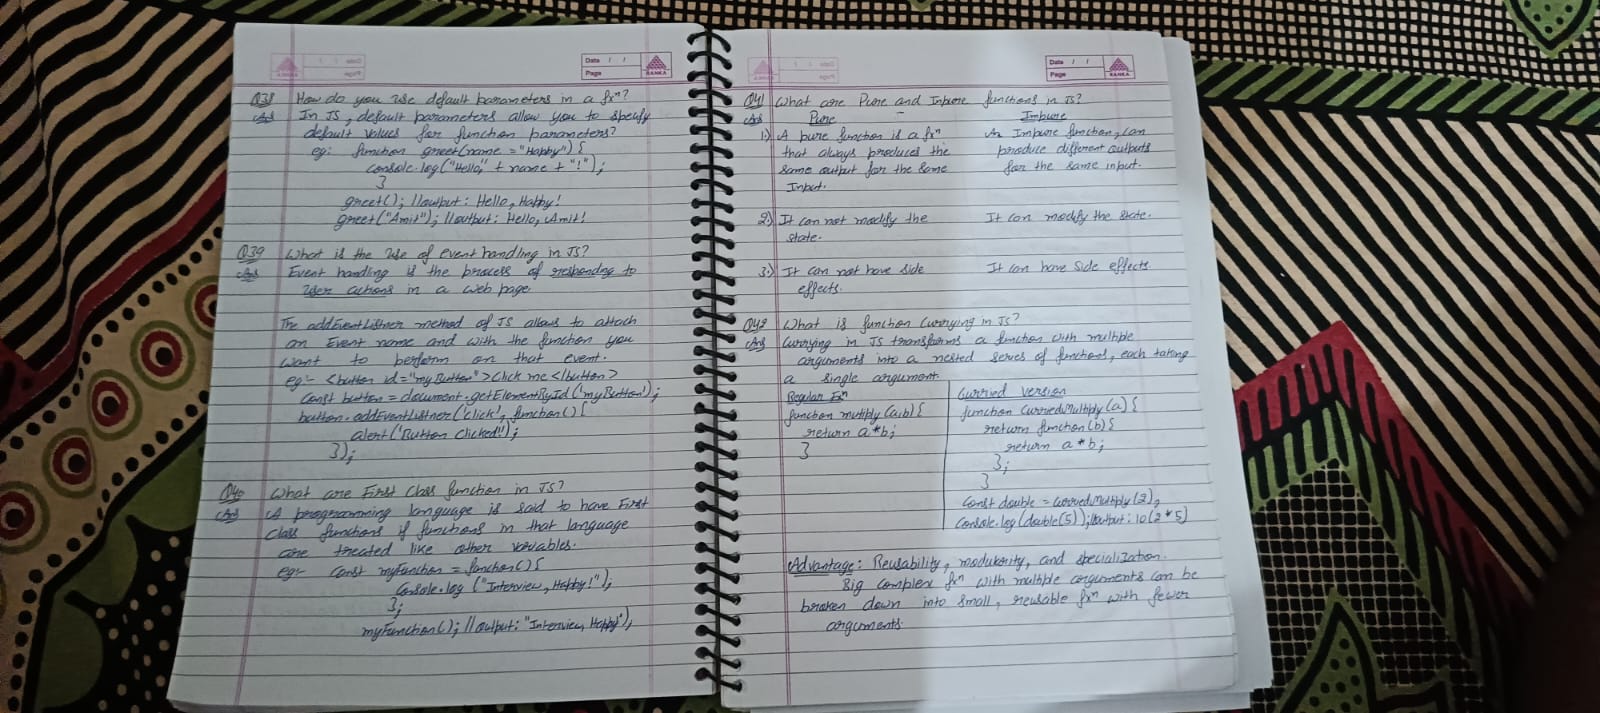 Date / /
Page
RANKA
Q38 How do you use default parameters in a fxⁿ?
Ans In JS, default parameters allow you to specify
default values for function parameters?
eg: function greet(name = "Happy") {
console.log("Hello," + name + "!");
}
greet(); //output: Hello, Happy!
greet("Amit"); //output: Hello, Amit!
Q39 What is the use of event handling in JS?
Ans Event handling is the process of responding to
user actions in a web page.
The addEventListner method of JS allows to attach
an Event name and with the function you
want to perform on that event.
eg:- <button id="myButton">Click me</button>
const button = document.getElementById('myButton');
button.addEventListner('click', function() {
alert('Button Clicked!');
});
Q40 What are First Class function in JS?
Ans A programming language is said to have First
class functions if functions in that language
are treated like other variables.
eg:- const myFunction = function() {
Console.log ("Interview, Happy!");
};
myFunction(); //output: "Interview, Happy");
Date / /
Page
RANKA
Q41 What are Pure and Impure functions in JS?
Ans Pure Impure
1.) A pure function is a fxⁿ An Impure function, can
that always produces the produce different outputs
same output for the same for the same input.
Input.
2.) It can not modify the It can modify the state.
state.
3.) It can not have side It can have side effects.
effects.
Q42 What is function Currying in JS?
Ans Currying in JS transforms a function with multiple
arguments into a nested series of functions, each taking
a single argument.
Regular Fxⁿ
function mutiply (a,b) {
return a*b;
}
Curried version
function CurriedMultiply (a) {
return function(b) {
return a * b;
};
}
Const double = CurriedMultiply (2);
Console.log(double(5)); //output: 10 (2*5)
Advantage: Reusability, modularity, and specialization.
Big complex fxⁿ with multiple arguments can be
broken down into small, reusable fxⁿ with fewer
arguments